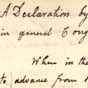 A Declaration by
in general Cong
When in the
to advance from t